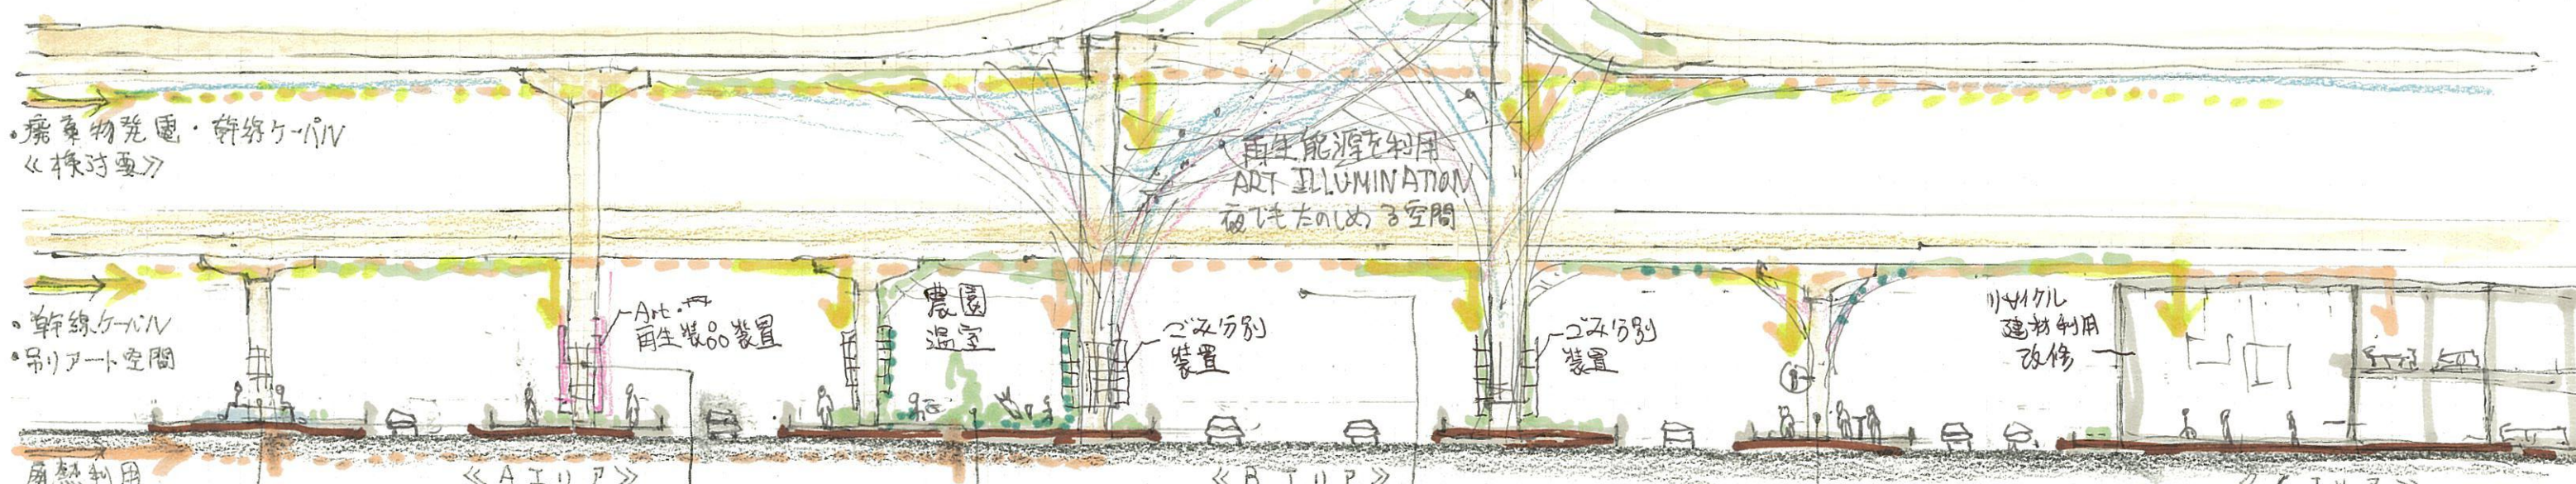 ・廃棄物発電・幹線ケーバル
≪検討要≫
・再生能源を利用
ART ILLUMINATION
夜でもたのしめる空間
・幹線ケーバル
・吊りアート空間
Art・
再生装品装置
農園
温室
ごみ分別
装置
ごみ分別
装置
リサイクル
建材利用
改修
廃熱利用
≪Aエリア≫
≪Bエリア≫